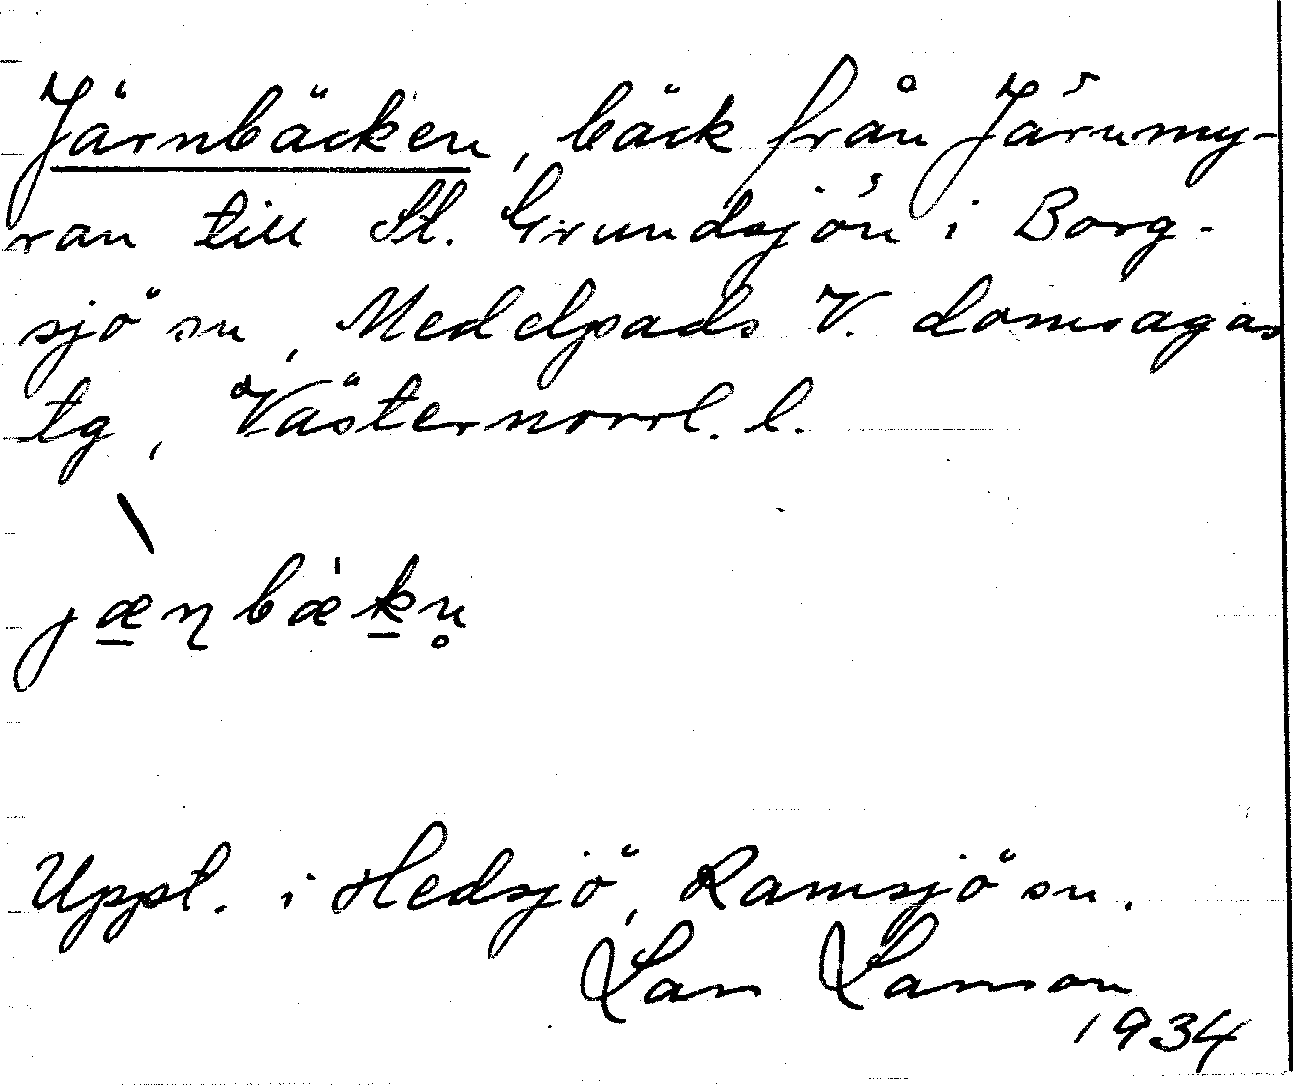 Järnbäcken, bäck från Järnmy-
ran till St. Grundsjön i Borg-
sjö sn, Medelpads V. domsagas
tg, Västernorrl. l.
jæ̠ɳbæ̍k̠n̥
Uppt. i Hedsjö, Ramsjö sn.
Lars Larsson
1934